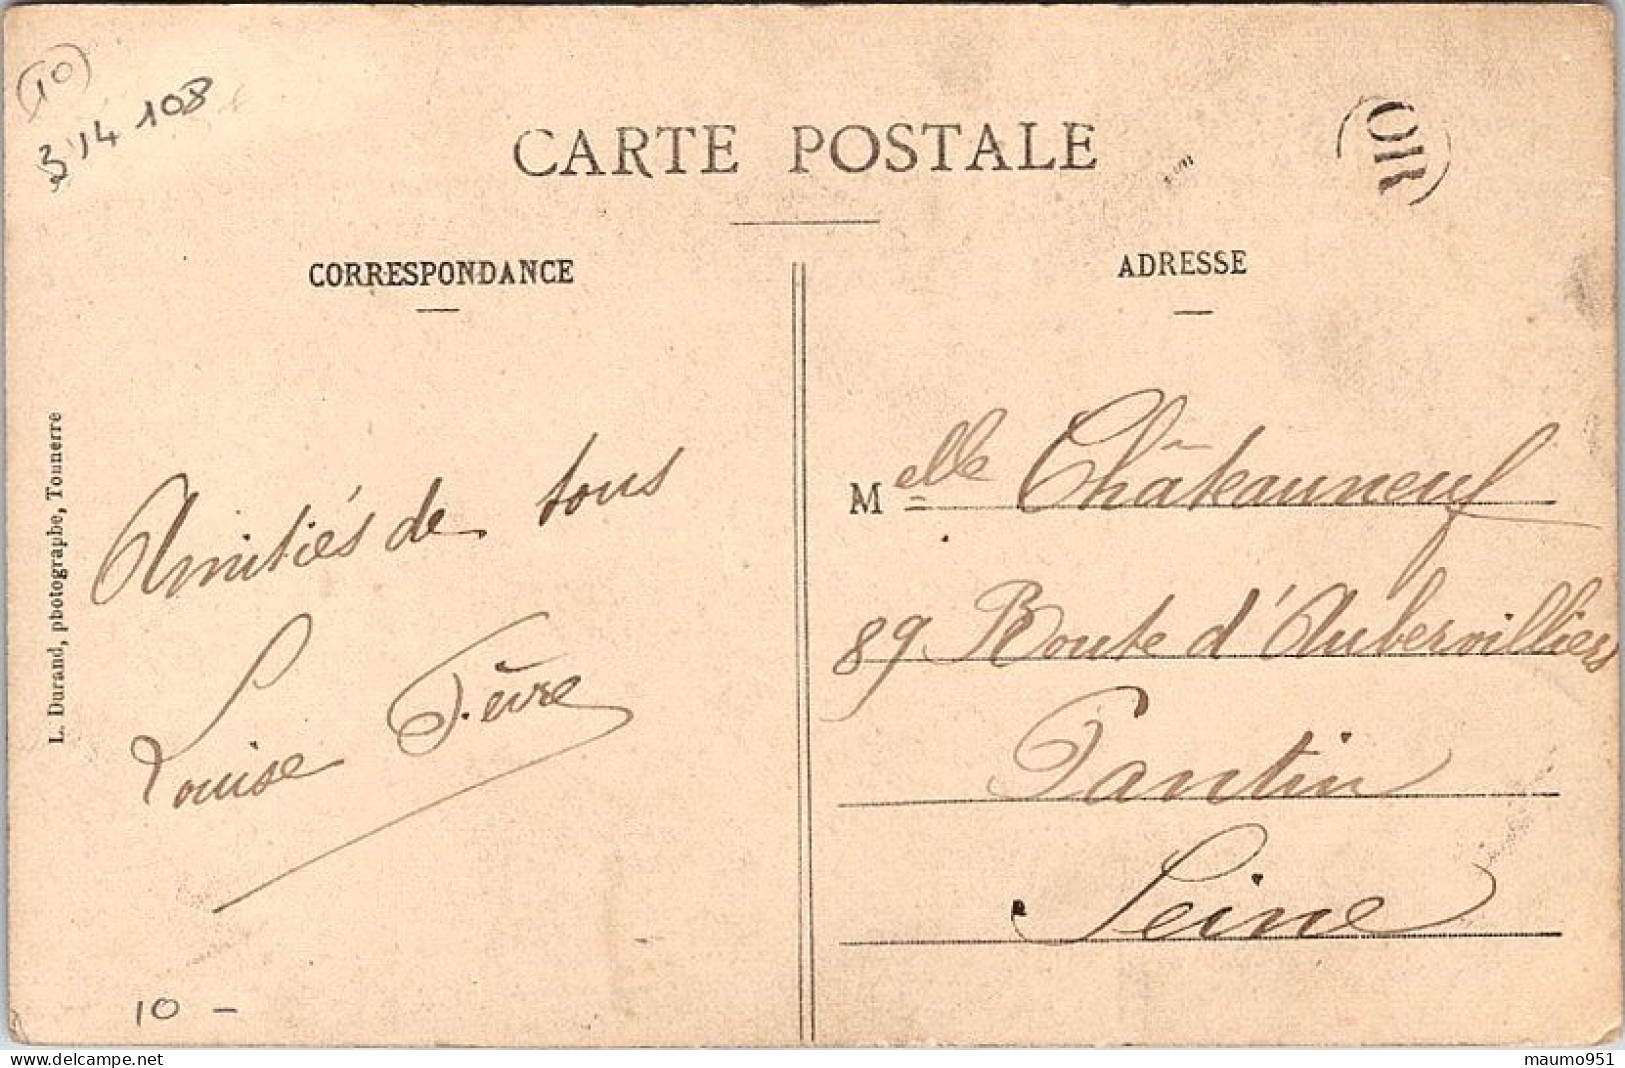 10
3'14 108
CARTE POSTALE
OR
CORRESPONDANCE
ADRESSE
L. Durand, photographe, Tonnerre
Amitiés de tous
Louise Fèvre
10 -
Melle Châteauneuf
89 Route d'Aubervilliers
Pantin
Seine
delcampe.net
maumo951